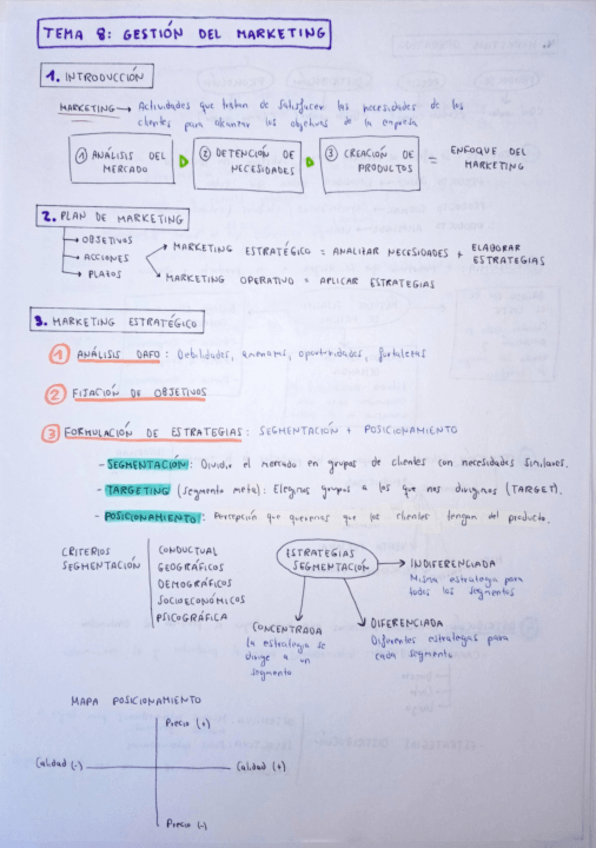 TEMA 8: GESTIÓN DEL MARKETING
1. INTRODUCCIÓN
MARKETING → Actividades que tratan de satisfacer las necesidades de los
clientes para alcanzar los objetivos de la empresa
① ANÁLISIS DEL
MERCADO
② DETENCIÓN DE
NECESIDADES
③ CREACIÓN DE
PRODUCTOS
= ENFOQUE DEL
MARKETING
2. PLAN DE MARKETING
→ OBJETIVOS
→ ACCIONES
→ PLAZOS
MARKETING ESTRATÉGICO = ANALIZAR NECESIDADES + ELABORAR
ESTRATEGIAS
MARKETING OPERATIVO = APLICAR ESTRATEGIAS
3. MARKETING ESTRATÉGICO
① ANÁLISIS DAFO: Debilidades, amenazas, oportunidades, fortalezas
② FIJACIÓN DE OBJETIVOS
③ FORMULACIÓN DE ESTRATEGIAS: SEGMENTACIÓN + POSICIONAMIENTO
- SEGMENTACIÓN: Dividir el mercado en grupos de clientes con necesidades similares.
- TARGETING (segmento meta): Elegimos grupos a los que nos dirigimos (TARGET).
- POSICIONAMIENTO: Percepción que queremos que los clientes tengan del producto.
CRITERIOS
SEGMENTACIÓN
CONDUCTUAL
GEOGRÁFICOS
DEMOGRÁFICOS
SOCIOECONÓMICOS
PSICOGRÁFICA
ESTRATEGIAS
SEGMENTACIÓN
INDIFERENCIADA
Misma estrategia para
todos los segmentos
CONCENTRADA
La estrategia se
dirige a un
segmento
DIFERENCIADA
Diferentes estrategias para
cada segmento
MAPA POSICIONAMIENTO
Precio (+)
Calidad (-)
Calidad (+)
Precio (-)